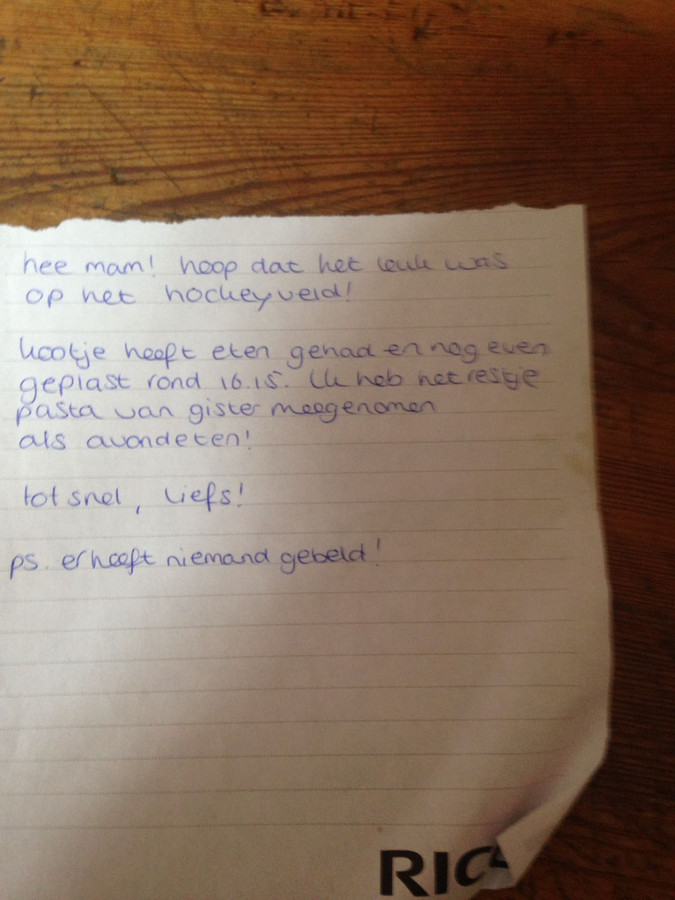 hee mam! hoop dat het leuk was
op het hockeyveld!
kootje heeft eten gehad en nog even
geplast rond 16.15. Ik heb het restje
pasta van gister meegenomen
als avondeten!
tot snel, liefs!
ps. er heeft niemand gebeld!
RIC